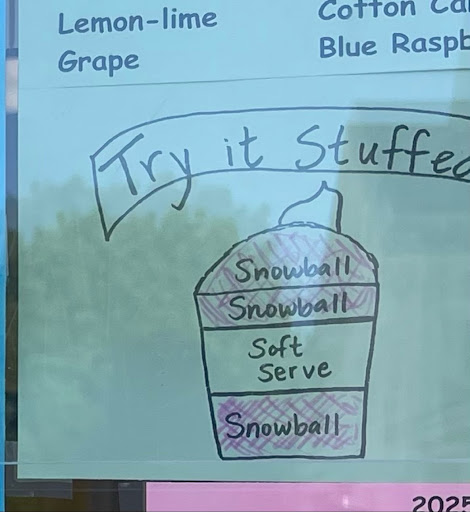 Lemon-lime
Grape
Cotton
Blue
Try it Stuffed
Snowball
Snowball
Soft
Serve
Snowball
2025